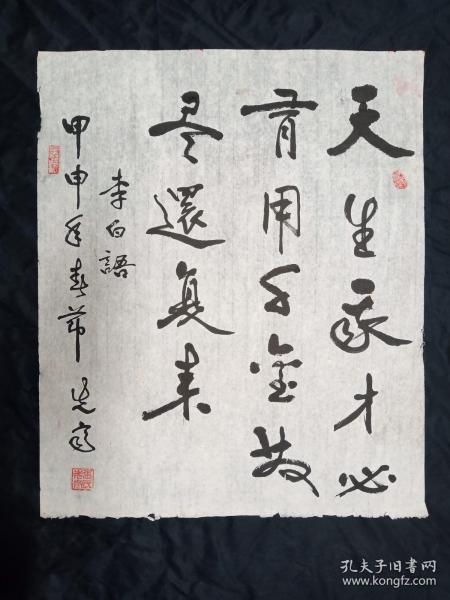 天生我才必
有用千金散
尽還复来
李白語
甲申年春节
孔夫子旧书网
www.kongfz.com